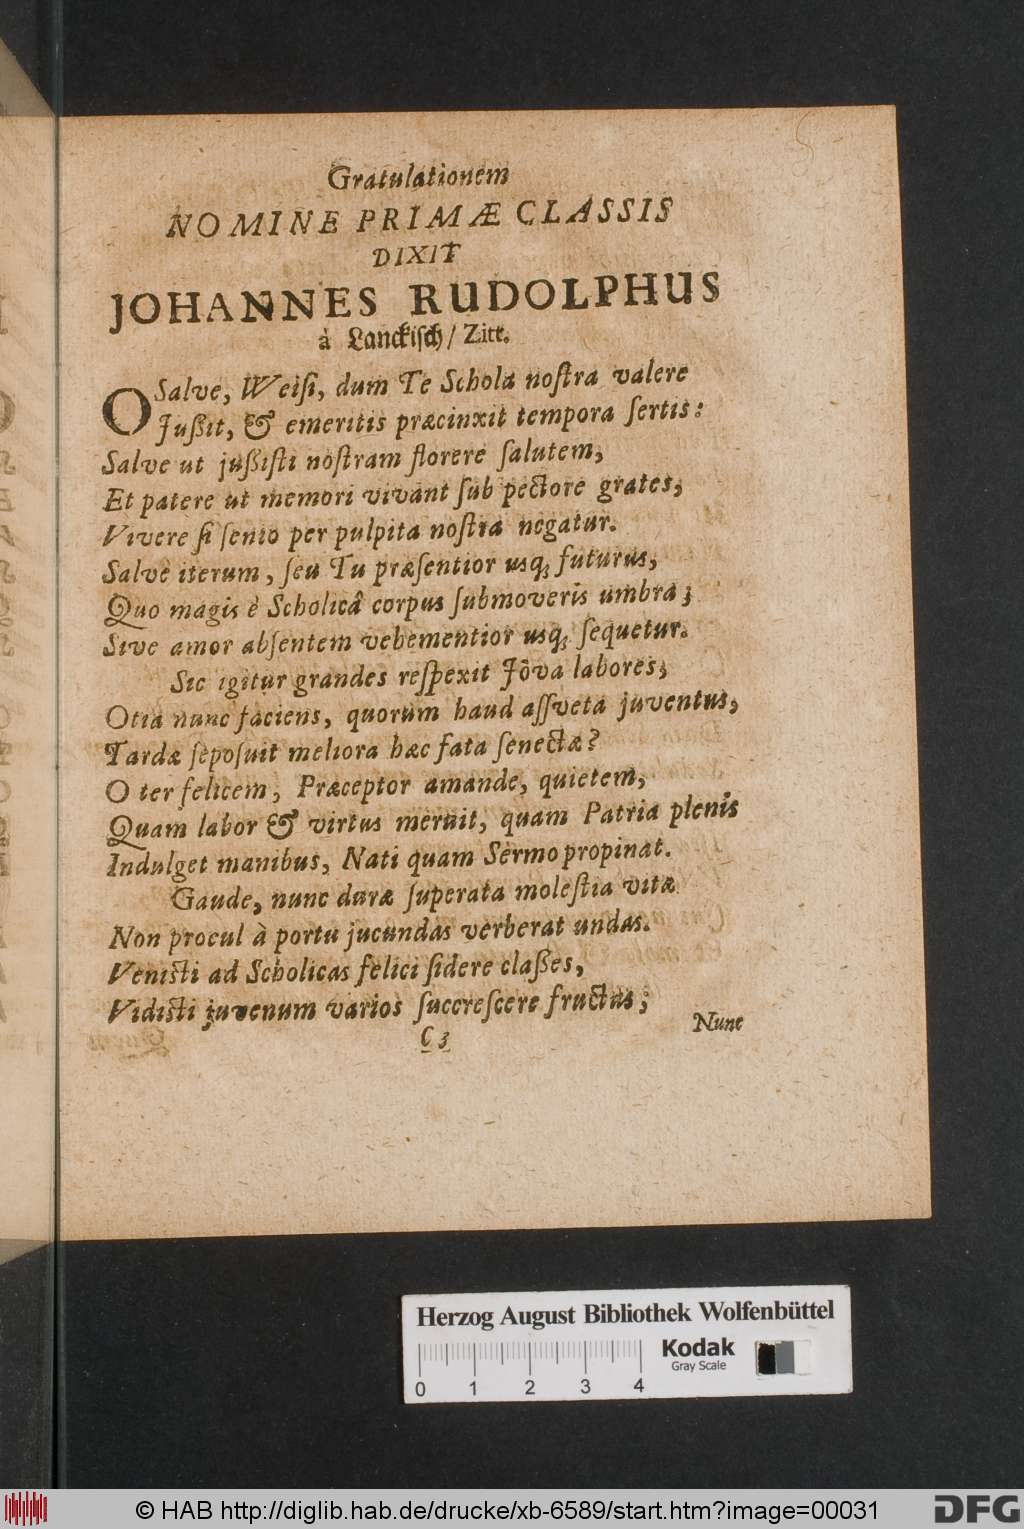 Gratulationem
NOMINE PRIMÆ CLASSIS
DIXIT
JOHANNES RUDOLPHUS
à Lanckisch / Zitt.
O Salve, Weisi, dum Te Schola nostra valere
Jußit, & emeritis præcinxit tempora sertis:
Salve ut jußisti nostram florere salutem,
Et patere ut memori vivant sub pectore grates,
Vivere si senio per pulpita nostra negatur.
Salve iterum, seu Tu præsentior usq; futurus,
Quo magis è Scholicâ corpus submoveris umbra;
Sive amor absentem vehementior usq; sequetur.
Sic igitur grandes respexit Jôva labores;
Otia nunc faciens, quorum haud assveta juventus,
Tardæ seposuit meliora hæc fata senectæ?
O ter felicem, Præceptor amande, quietem,
Quam labor & virtus meruit, quam Patria plenis
Indulget manibus, Nati quam Sermo propinat.
Gaude, nunc duræ superata molestia vitæ
Non procul à portu jucundas verberat undas.
Venisti ad Scholicas felici sidere claßes,
Vidisti juvenum varios succrescere fructus;
C 3
Nunc
Herzog August Bibliothek Wolfenbüttel
Kodak
Gray Scale
0 1 2 3 4
© HAB http://diglib.hab.de/drucke/xb-6589/start.htm?image=00031
DFG